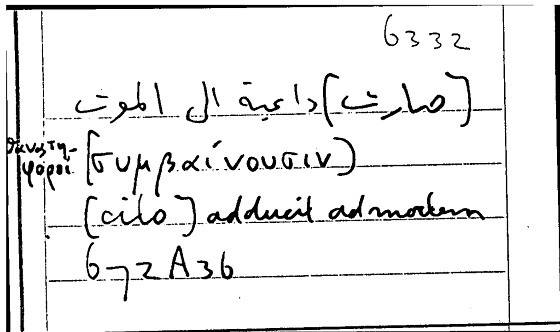 6332
[صارت] داعية ال الموت
θανατη-
φόροι [συμβαίνουσιν)
[cito] adducit ad mortem
672A36